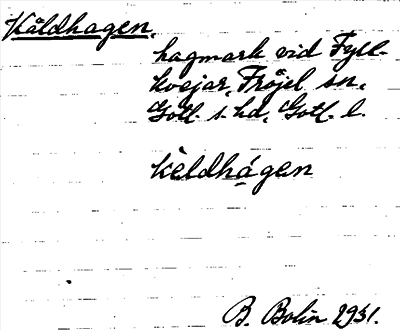 Käldhagen.
hagmark vid Fyll-
kvejar, Fröjel sn,
Gotl. s. hd, Gotl. l.
kèldhágen
B. Bolin 1931.